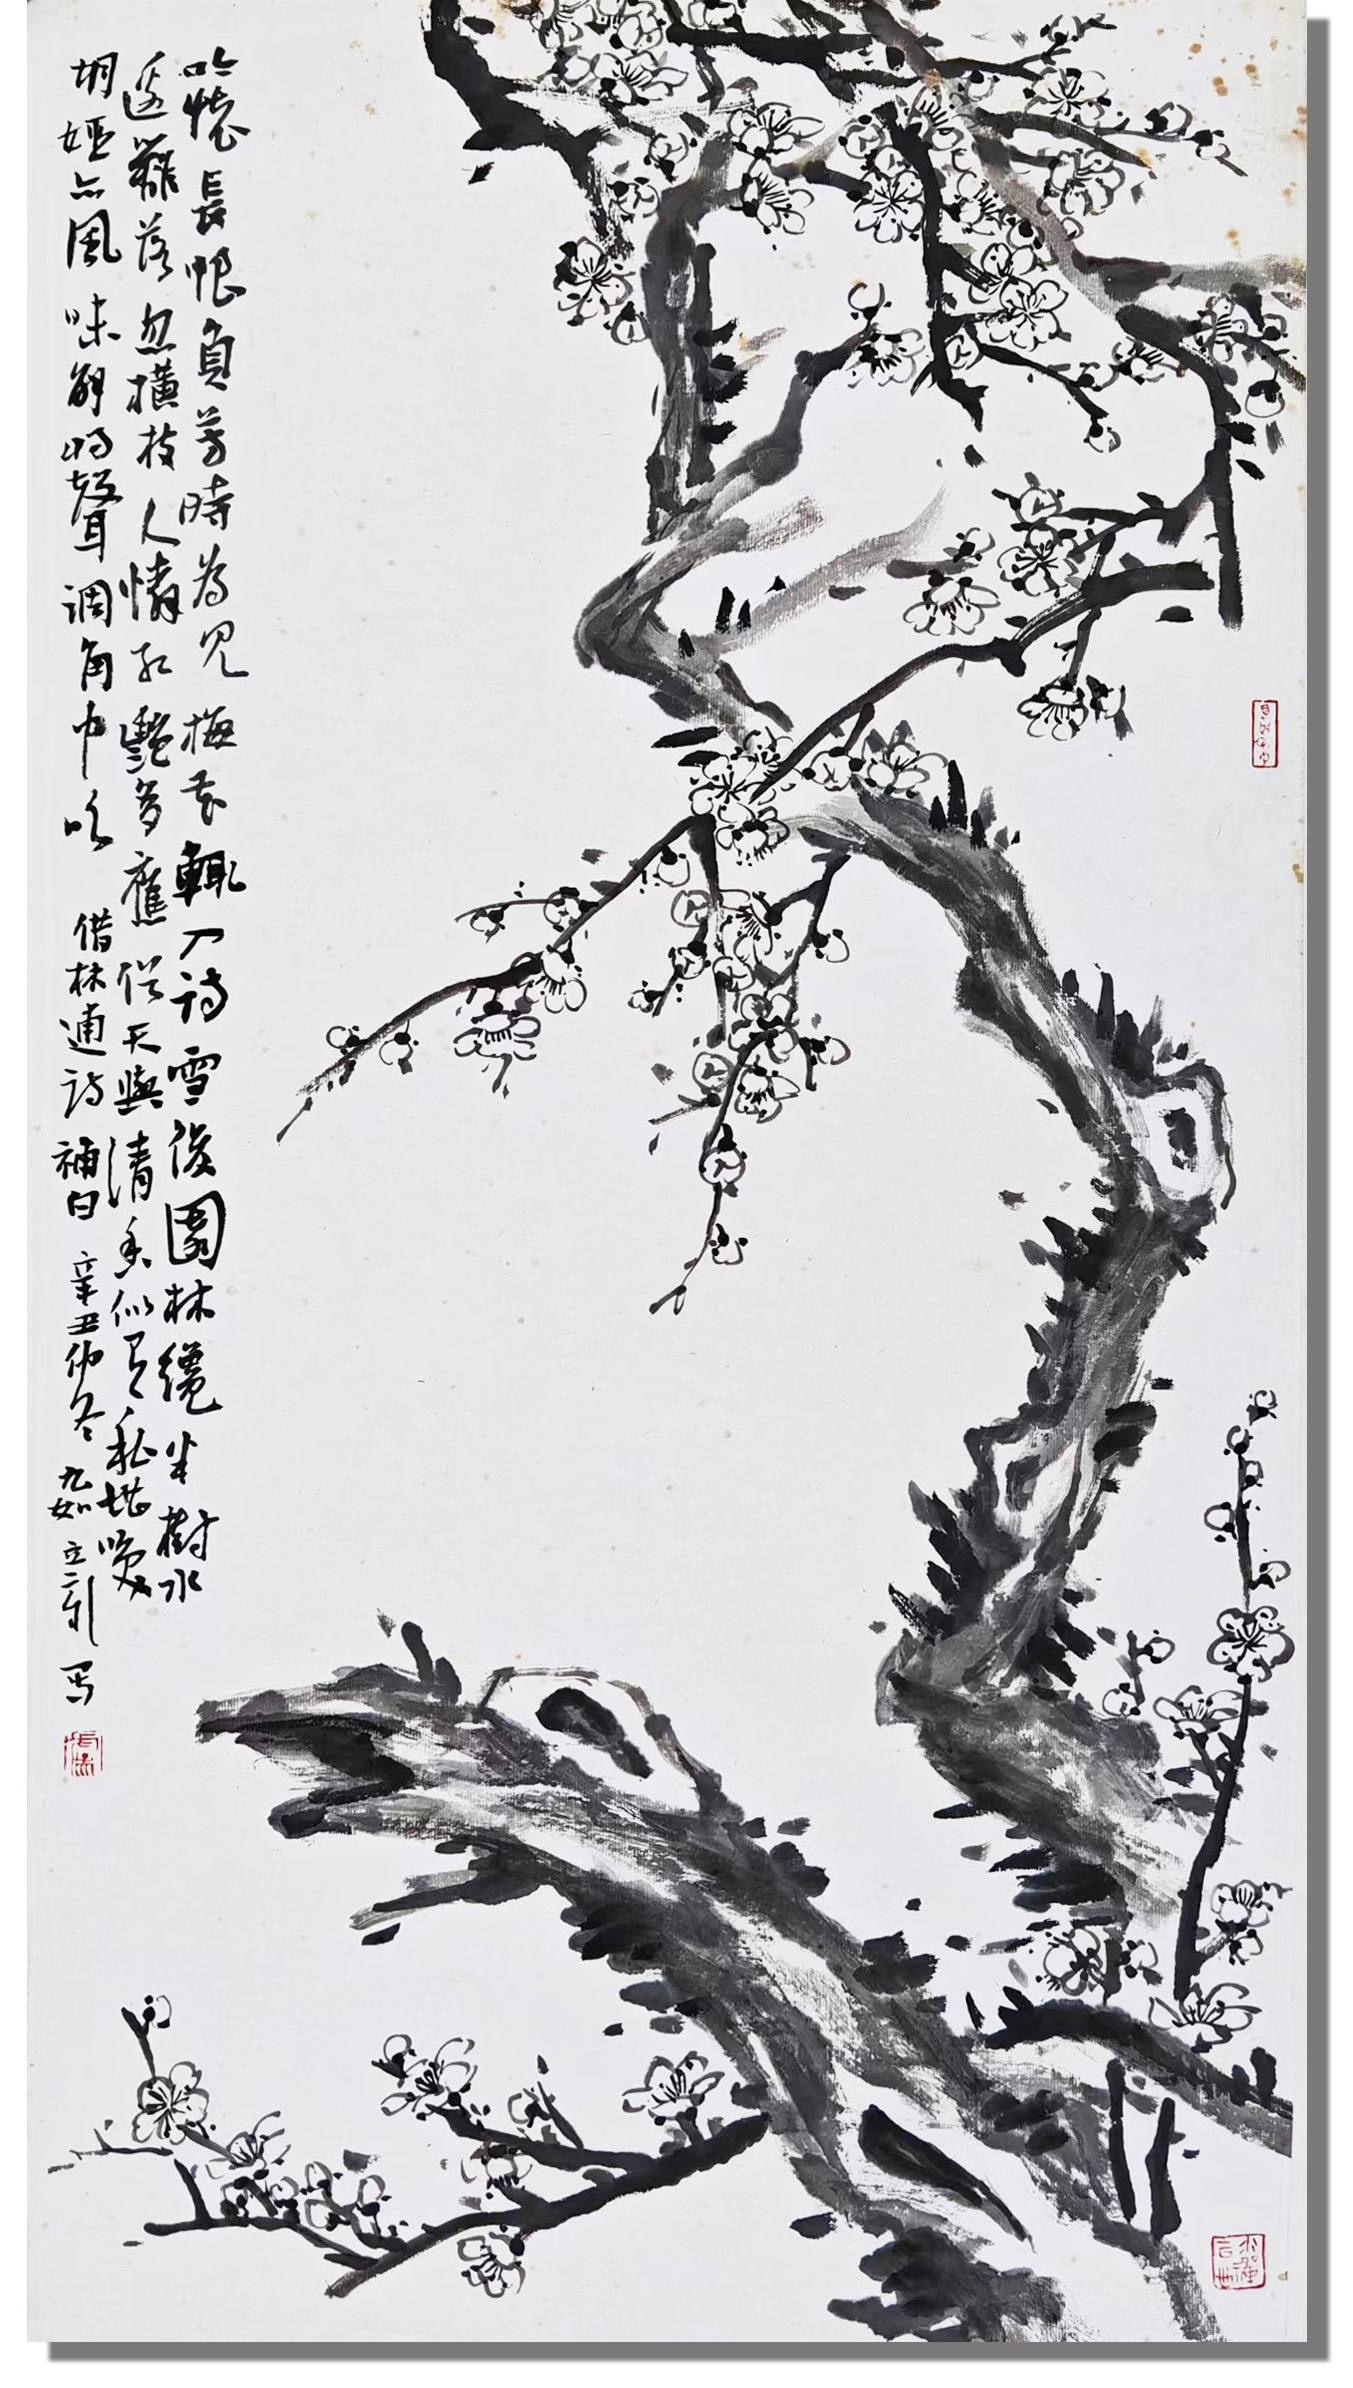 吟懷長恨負芳時為見梅花輒入詩雪後園林纔半樹水
邊籬落忽橫枝人憐紅艷多應俗天與清香似有私堪笑
胡亦風味解將聲調角中吹 借林逋詩補白 辛丑仲冬 九如立新写